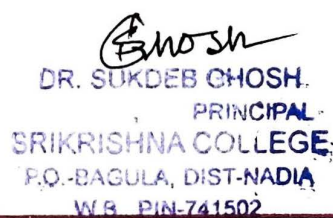 Ghosh
DR. SUKDEB GHOSH.
PRINCIPAL
SRIKRISHNA COLLEGE
P.O.-BAGULA, DIST-NADIA
W.B. PIN-741502